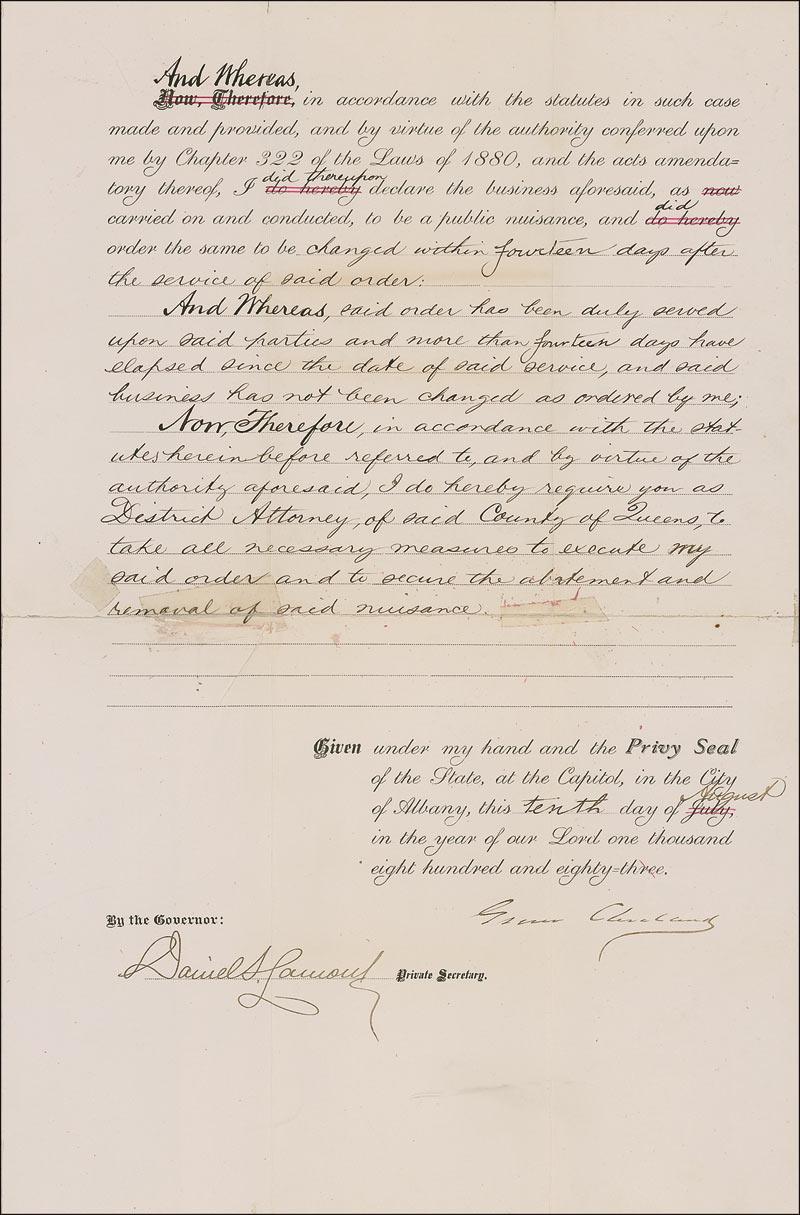 And Whereas,
Now, Therefore, in accordance with the statutes in such case
made and provided, and by virtue of the authority conferred upon
me by Chapter 322 of the Laws of 1880, and the acts amenda=
did thereupon
tory thereof, I do hereby declare the business aforesaid, as now
did
carried on and conducted, to be a public nuisance, and do hereby
order the same to be changed within fourteen days after
the service of said order:
And Whereas, said order has been duly served
upon said parties and more than fourteen days have
elapsed since the date of said service, and said
business has not been changed as ordered by me;
Now, Therefore, in accordance with the stat-
utes herein before referred to, and by virtue of the
authority aforesaid, I do hereby require you as
District Attorney, of said County of Queens, to
take all necessary measures to execute my
said order and to secure the abatement and
removal of said nuisance.
Given under my hand and the Privy Seal
of the State, at the Capitol, in the City
August
of Albany, this tenth day of July,
in the year of our Lord one thousand
eight hundred and eighty=three.
Grover Cleveland
By the Governor:
Daniel S. Lamont Private Secretary.